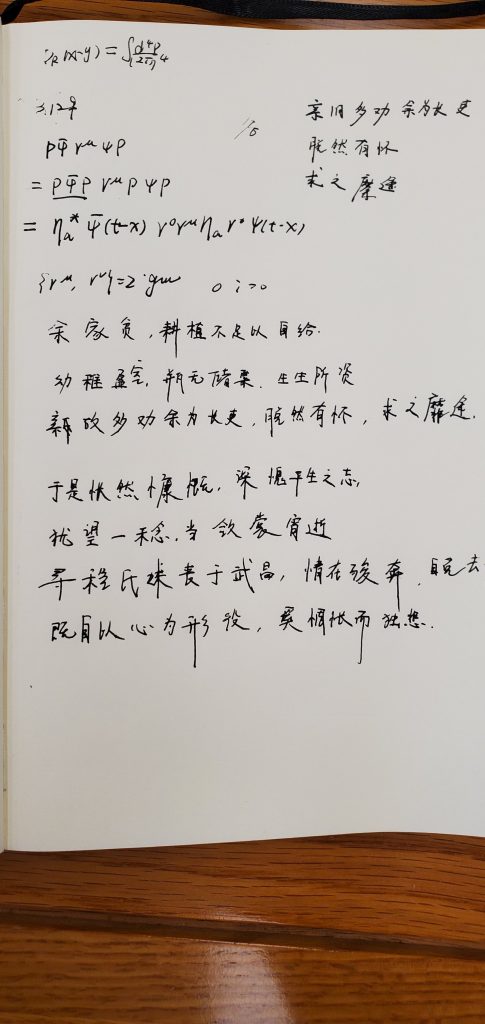 (x-y) = ∫ d⁴p/(2π)⁴
3.129
P Ψ̄ γ^μ Ψ P
= P Ψ̄ P γ^μ P Ψ P
= η_a* Ψ̄(t-x) γ⁰ γ^μ η_a γ⁰ Ψ(t-x)
{γ^μ, γ^ν} = 2·g^μν
亲旧多劝余为长吏
脱然有怀
求之靡途
余家贫,耕植不足以自给.
幼稚盈室,瓶无储粟.生生所资
亲故多劝余为长吏,脱然有怀,求之靡途.
于是怅然慷慨,深愧平生之志,
犹望一稔,当敛裳宵逝
寻程氏妹丧于武昌,情在骏奔,自免去
既自以心为形役,奚惆怅而独悲.